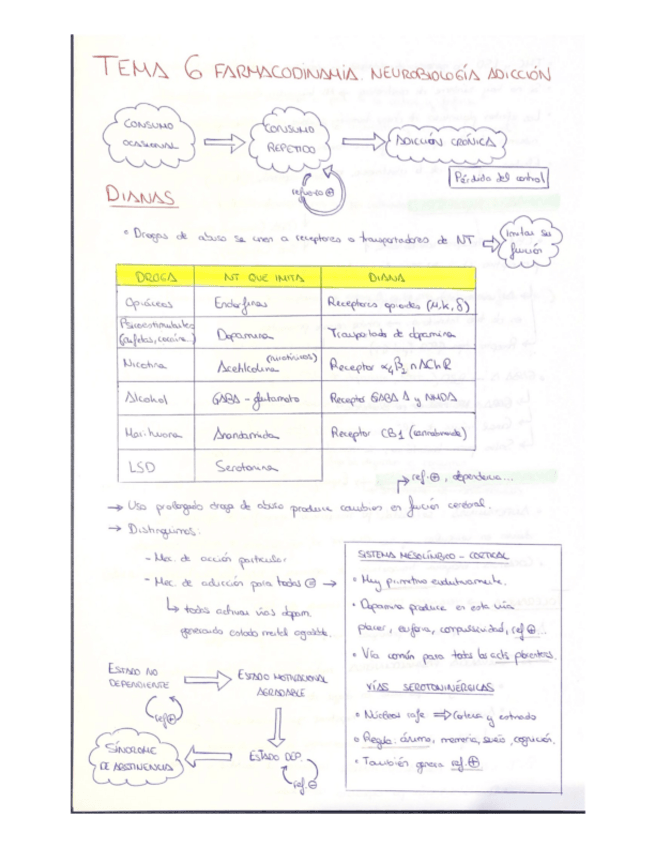 TEMA 6 FARMACODINAMIA. NEUROBIOLOGÍA ADICCIÓN
CONSUMO OCASIONAL
CONSUMO REPETIDO
ADICCIÓN CRÓNICA
refuerzo ⊕
Pérdida del control
DIANAS
• Drogas de abuso se unen a receptores o transportadores de NT ⇒ Imitan su función
DROGA NT QUE IMITA DIANA
Opiáceos Endorfinas Receptores opioides (μ, k, δ)
Psicoestimulantes (anfetas, cocaína..) Dopamina Transportador de dopamina
Nicotina Acetilcolina (nicotínicos) Receptor α4β2 nAChR
Alcohol GABA - glutamato Receptor GABA A y NMDA
Marihuana Anandamida Receptor CB1 (cannabinoide)
LSD Serotonina
→ ref. ⊕, dependencia...
→ Uso prolongado droga de abuso produce cambios en función cerebral.
→ Distinguimos:
- Mec. de acción particular
- Mec. de adicción para todas ⊜ →
↳ todas activan vías dopam.
generando estado mental agradable.
SISTEMA MESOLÍMBICO - CORTICAL
• Muy primitivo evolutivamente.
• Dopamina produce en esta vía
placer, euforia, compulsividad, ref ⊕...
• Vía común para todas las acts placenteras.
VÍAS SEROTONINÉRGICAS
• Núcleos rafe ⇒ Corteza y estriado
• Regula ánimo, memoria, sueño, cognición.
• También genera ref. ⊕
ESTADO NO DEPENDIENTE
ref ⊕
ESTADO MOTIVACIONAL AGRADABLE
ESTADO DEP.
ref. ⊖
SÍNDROME DE ABSTINENCIA